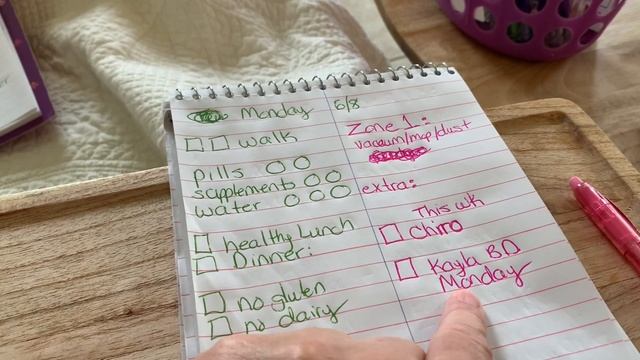 Monday 6/8
walk
pills
supplements
water
healthy Lunch
Dinner:
no gluten
no dairy
Zone 1:
vacuum/mop/dust
extra:
This wk
chiro
Kayla BD
Monday